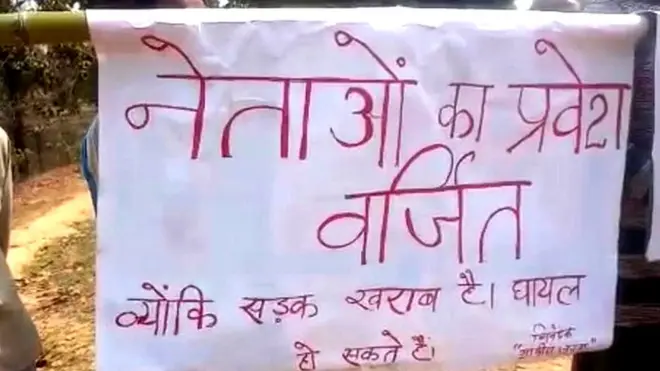 नेताओं का प्रवेश
वर्जित
क्योंकि सड़क खराब है। घायल
हो सकते हैं।
निवेदक